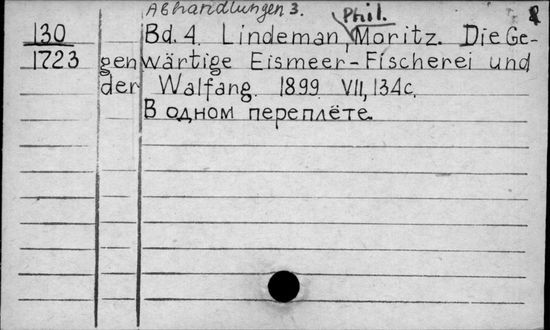 Abhandlungen 3.
Phil.
130 Bd. 4. Lindeman, Moritz. Die Ge-
1723 genwärtige Eismeer-Fischerei und
der Walfang. 1899 VII, 134 с.
В одном переплёте.